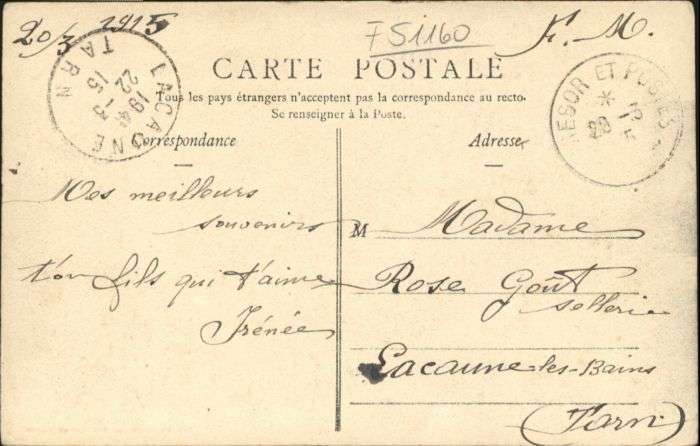 20/3 1915
FS1160
F. M.
LACAUNE
TARN
22 -3
15
TRESOR ET POSTES
*
CARTE POSTALE
Tous les pays étrangers n'acceptent pas la correspondance au recto.
Se renseigner à la Poste.
Correspondance
Adresse
Mes meilleurs
souvenirs
ton fils qui t'aime
Irénée
M Madame
Rose Goût
sellerie
Lacaune-les-Bains
(Tarn)